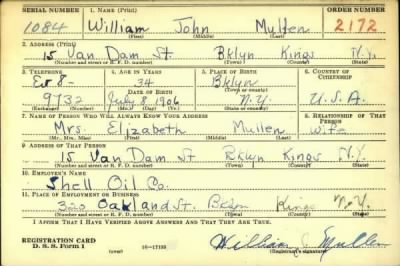 SERIAL NUMBER 1. NAME (Print) ORDER NUMBER
1084 William John Mullen 2172
(First) (Middle) (Last)
2. ADDRESS (Print)
15 Van Dam St. Bklyn Kings N.Y.
(Number and street or R. F. D. number) (Town) (County) (State)
3. TELEPHONE 4. AGE IN YEARS 5. PLACE OF BIRTH 6. COUNTRY OF CITIZENSHIP
Ev 8- 34 Bklyn
DATE OF BIRTH (Town or county)
9732 July 8 1906 N.Y. U.S.A.
(Exchange) (Number) (Mo.) (Day) (Yr.) (State or country)
7. NAME OF PERSON WHO WILL ALWAYS KNOW YOUR ADDRESS 8. RELATIONSHIP OF THAT PERSON
Mrs. Elizabeth Mullen Wife
(Mr., Mrs., Miss) (First) (Middle) (Last)
9. ADDRESS OF THAT PERSON
15 Van Dam St Bklyn Kings N.Y.
(Number and street or R. F. D. number) (Town) (County) (State)
10. EMPLOYER'S NAME
Shell Oil Co.
11. PLACE OF EMPLOYMENT OR BUSINESS
320 Oakland St. Bklyn Kings N.Y.
(Number and street or R. F. D. number) (Town) (County) (State)
I AFFIRM THAT I HAVE VERIFIED ABOVE ANSWERS AND THAT THEY ARE TRUE.
REGISTRATION CARD
D. S. S. Form 1 (over) 16—17105 William J. Mullen
(Registrant's signature)